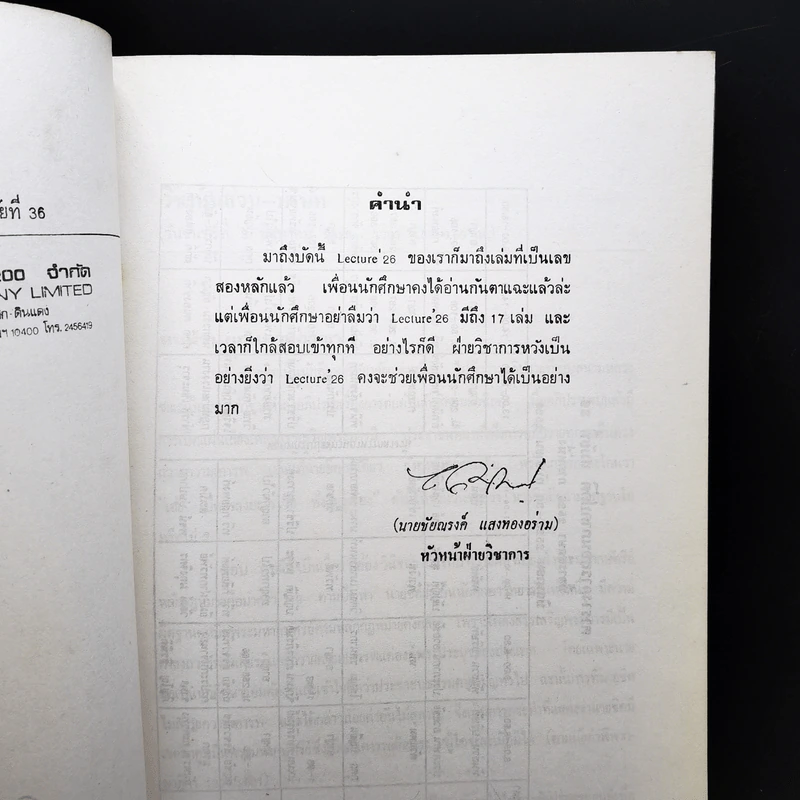 ยที่ 36
200 จำกัด
NY LIMITED
ก-ดินแดง
ฯ 10400 โทร. 2456419
คำนำ
มาถึงบัดนี้ Lecture'26 ของเราก็มาถึงเล่มที่เป็นเลข
สองหลักแล้ว เพื่อนนักศึกษาคงได้อ่านกันตาแฉะแล้วล่ะ
แต่เพื่อนนักศึกษาอย่าลืมว่า Lecture'26 มีถึง 17 เล่ม และ
เวลาก็ใกล้สอบเข้าทุกที อย่างไรก็ดี ฝ่ายวิชาการหวังเป็น
อย่างยิ่งว่า Lecture'26 คงจะช่วยเพื่อนนักศึกษาได้เป็นอย่าง
มาก
(นายชัยณรงค์ แสงทองอร่าม)
หัวหน้าฝ่ายวิชาการ